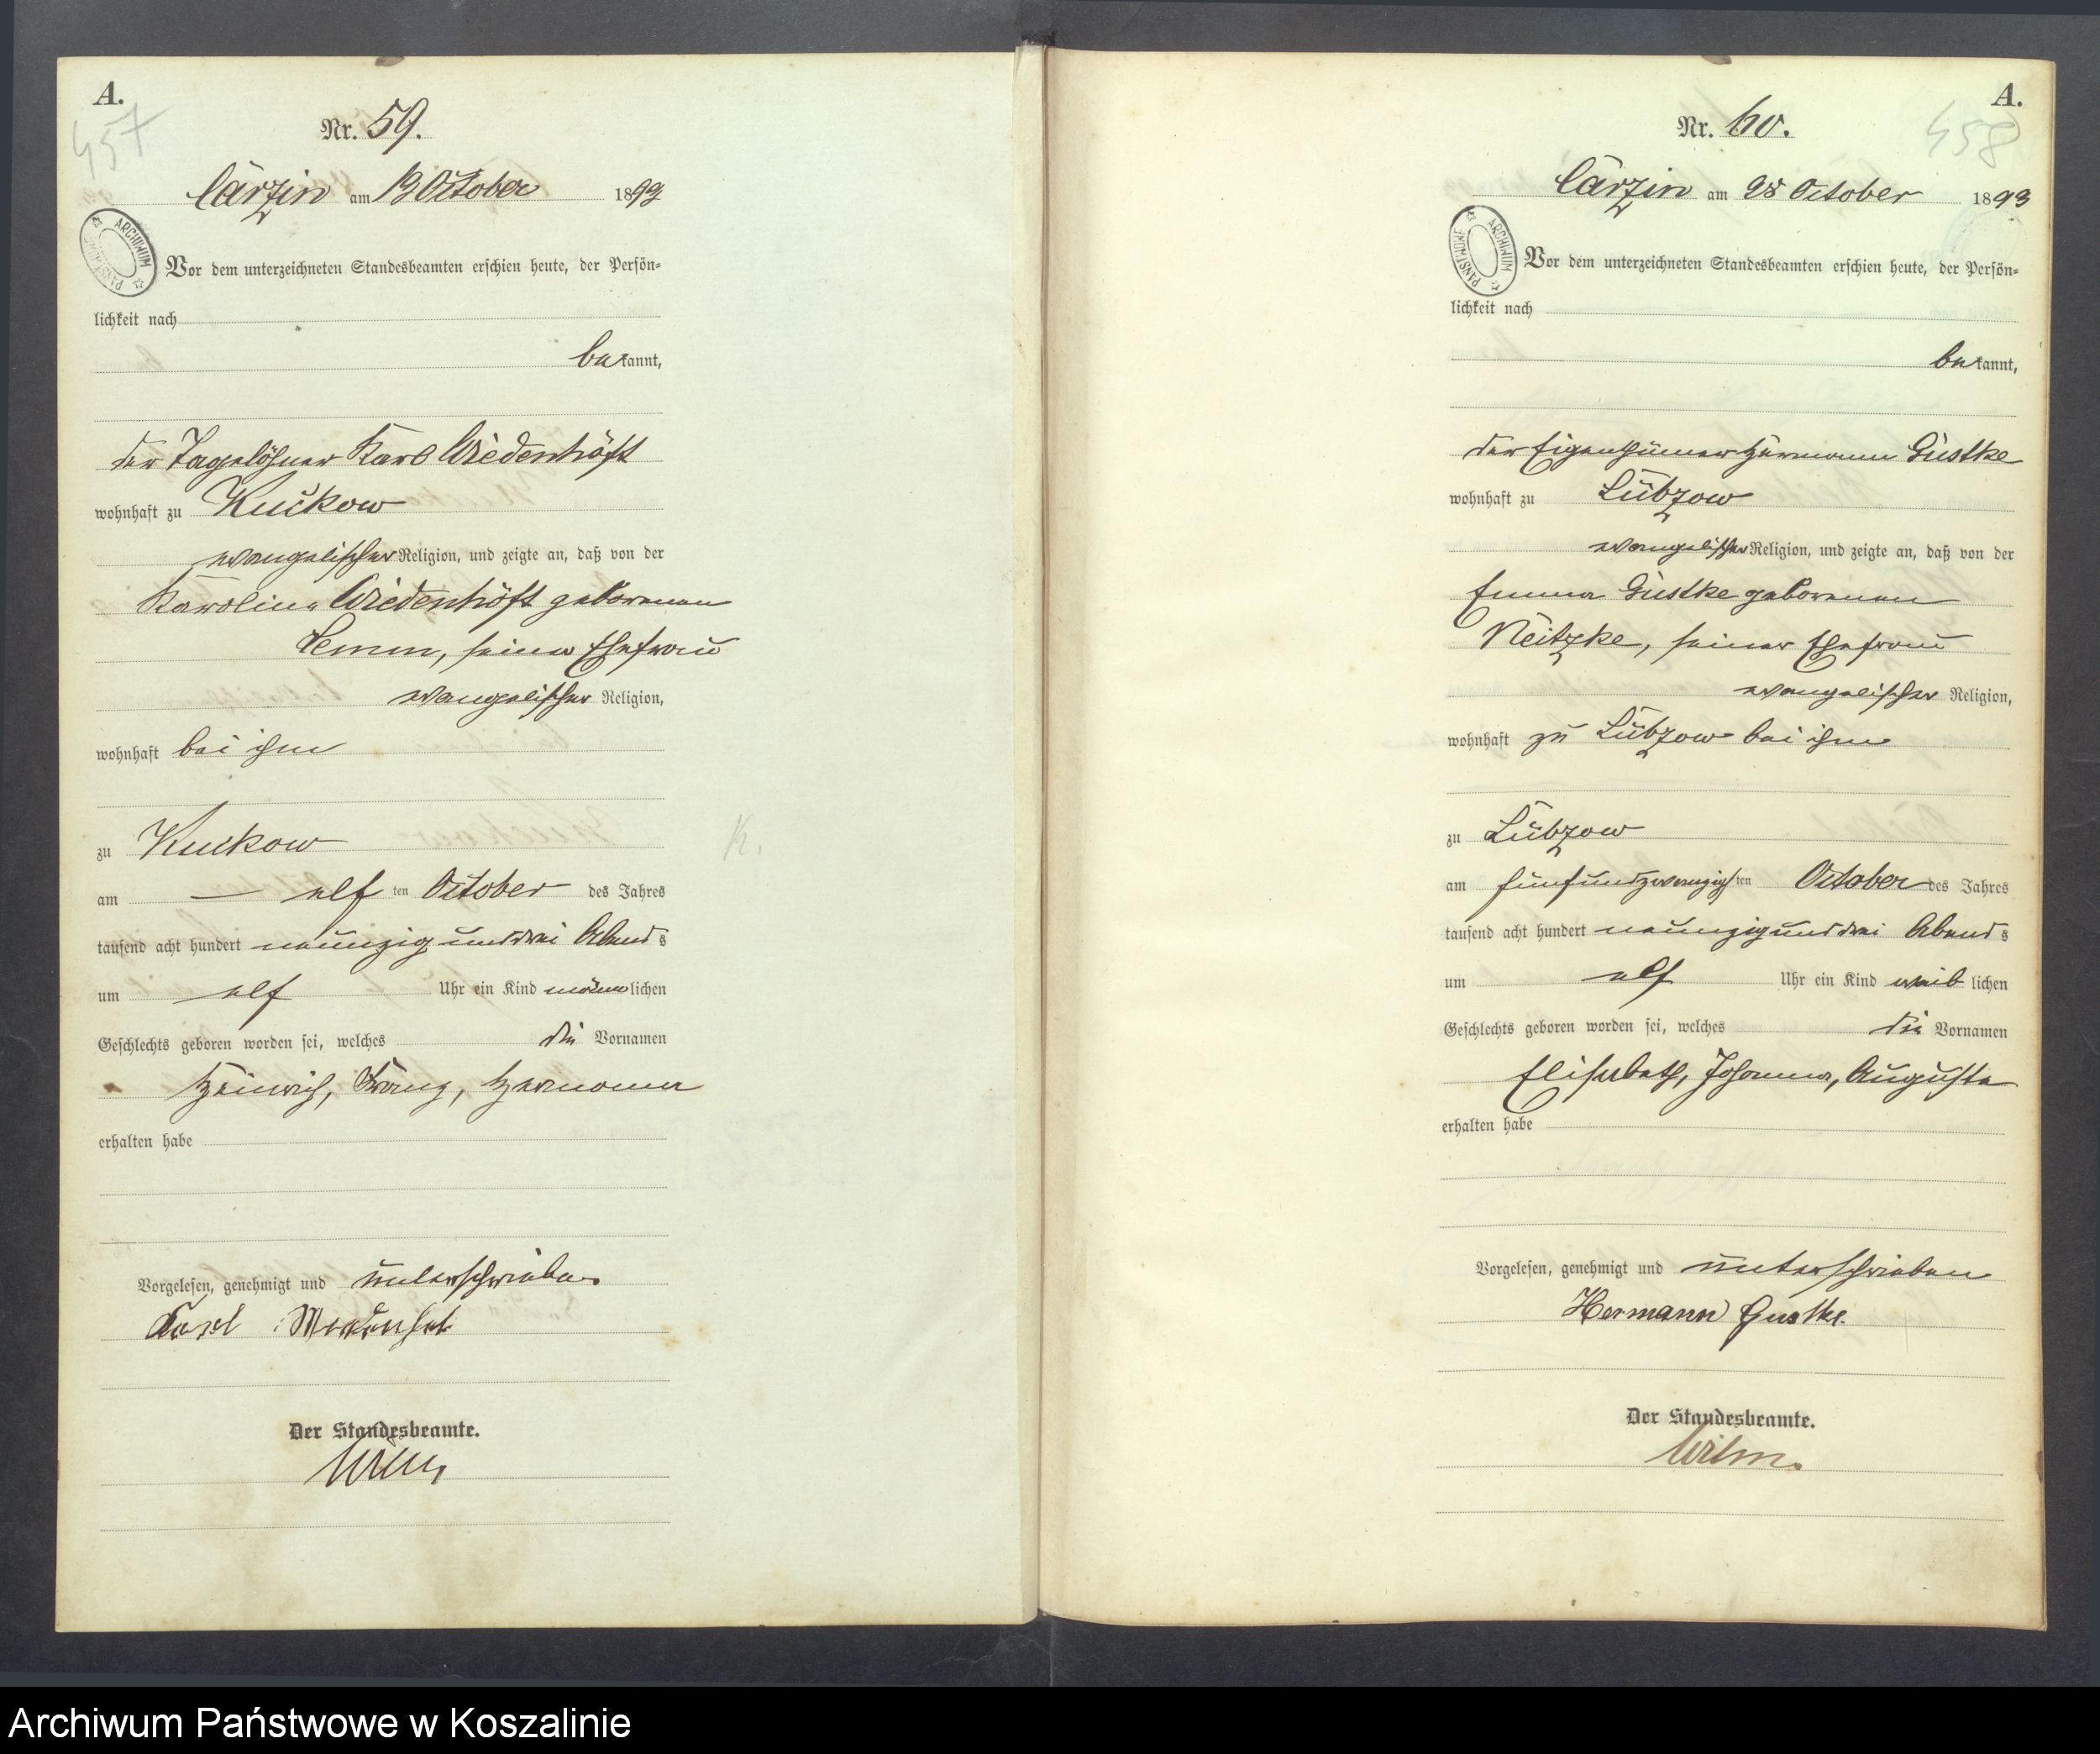 A.
457
Nr. 59.
Cärzin am 13 October 1893
Vor dem unterzeichneten Standesbeamten erschien heute, der Persön-
lichkeit nach
bekannt,
der Tagelöhner Karl Wiedenhöft
wohnhaft zu Kuckow
evangelischer Religion, und zeigte an, daß von der
Karoline Wiedenhöft geborenen
Lemm, seine Ehefrau
evangelischer Religion,
wohnhaft bei ihm
zu Kuckow
K.
am — elf ten October des Jahres
tausend acht hundert neunzig und drei Abends
um elf Uhr ein Kind männlichen
Geschlechts geboren worden sei, welches die Vornamen
Heinrich, Franz, Hermann
erhalten habe
Vorgelesen, genehmigt und unterschrieben
Karl
Der Standesbeamte.
Wilm
A.
458
Nr. 60.
Cärzin am 28 October 1893
Vor dem unterzeichneten Standesbeamten erschien heute, der Persön-
lichkeit nach
bekannt,
der Eigenthümer Hermann Gustke
wohnhaft zu Lübzow
evangelischer Religion, und zeigte an, daß von der
Emma Gustke geborenen
Neitzke, seiner Ehefrau
evangelischer Religion,
wohnhaft zu Lübzow bei ihm
zu Lübzow
am fünfundzwanzigsten October des Jahres
tausend acht hundert neunzig und drei Abends
um elf Uhr ein Kind weiblichen
Geschlechts geboren worden sei, welches die Vornamen
Elisabeth, Johanna, Augusta
erhalten habe
Vorgelesen, genehmigt und unterschrieben
Hermann Gustke.
Der Standesbeamte.
Wilm.
ARCHIWUM PAŃSTWOWE
ARCHIWUM PAŃSTWOWE
Archiwum Państwowe w Koszalinie